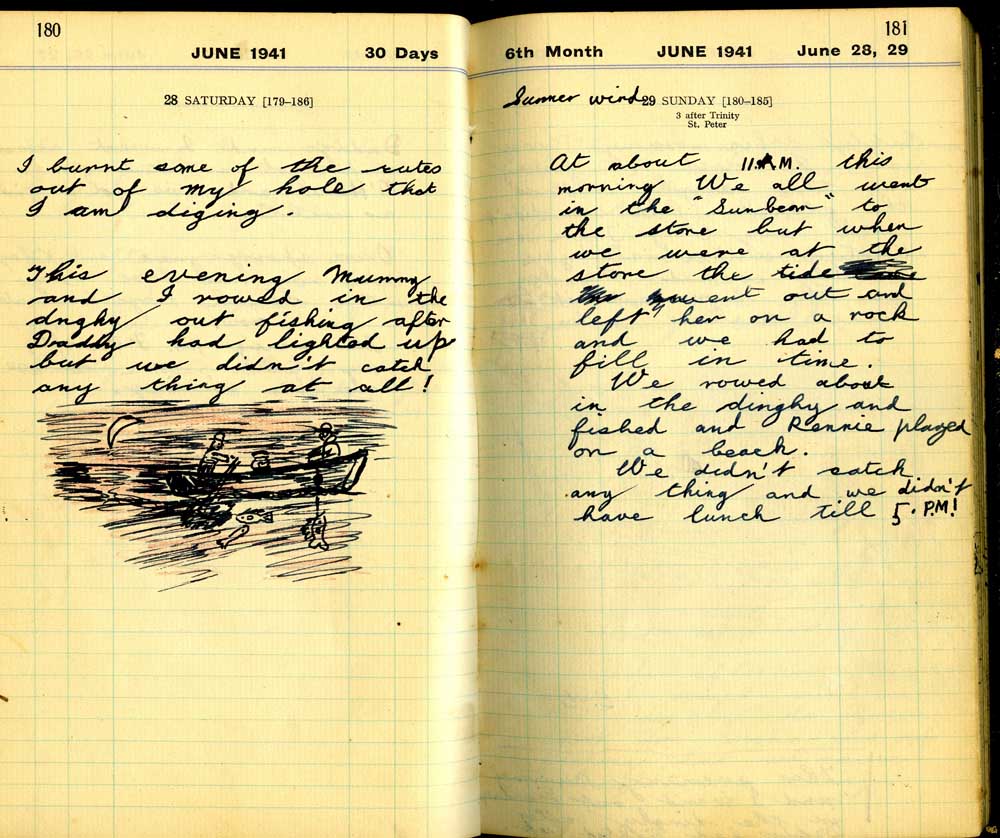 180
JUNE 1941 30 Days
28 SATURDAY [179–186]
I burnt some of the rutes
out of my hole that
I am diging.
This evening Mummy
and I rowed in the
dnghy out fishing after
Daddy had lighted up
but we didn't catch
any thing at all!
181
6th Month JUNE 1941 June 28, 29
Summer wind 29 SUNDAY [180–185]
3 after Trinity
St. Peter
At about 11 A.M. this
morning We all went
in the "Sunbeam" to
the store but when
we were at the
store the tide
went out and
left her on a rock
and we had to
fill in time.
We rowed about
in the dinghy and
fished and Rennie played
on a beach.
We didn't catch
any thing and we didn't
have lunch till 5.P.M!